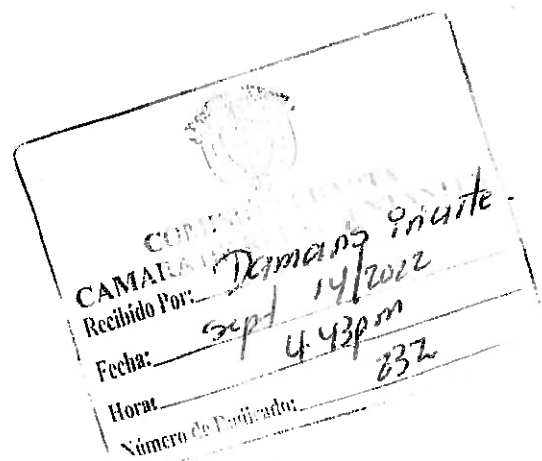 CAMARA
Recibido Por: Damaris Iriarte.
Fecha: Sept 14/2022
Hora: 4:43pm
Número de Radicado: 232